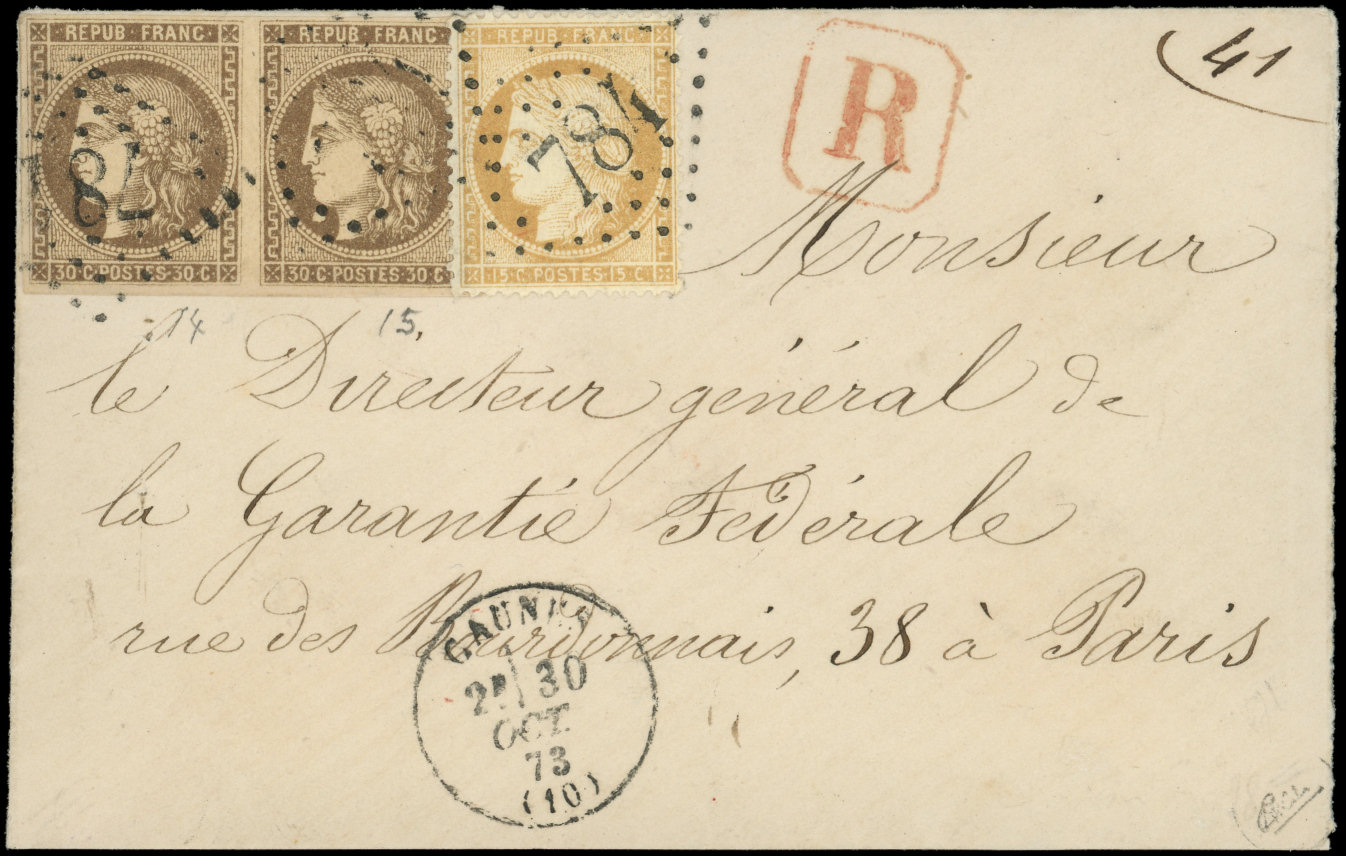 REPUB FRANC REPUB FRANC REPUB FRANC
30 C POSTES 30 C 30 C POSTES 30 C 15 C POSTES 15 C
784 784
R
41
14 15.
Monsieur
le Directeur général de
la Garantie Fédérale
rue des Bourdonnais, 38 à Paris
CAUNES
2E 30
OCT
73
(10)